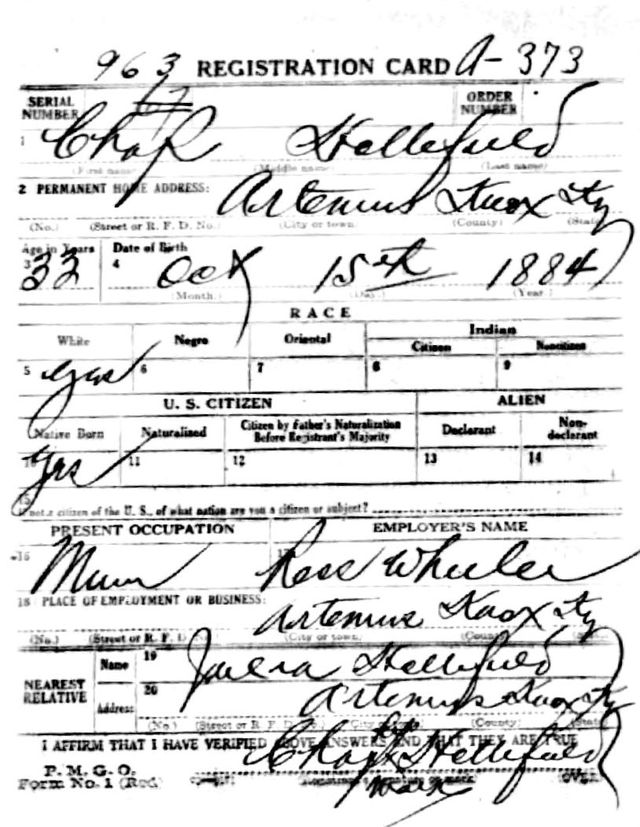 963 REGISTRATION CARD A-373
SERIAL NUMBER 17 ORDER NUMBER
1 Chap
(First name) (Middle name) (Last name)
2 PERMANENT HOME ADDRESS: Artemus Knox Ky
(No.) (Street or R. F. D. No.) (City or town) (County) (State)
Age in Years Date of Birth
3 32 4 Oct 15th 1884
(Month.) (Day.) (Year.)
RACE
White Negro Oriental Indian
Citizen Noncitizen
5 yes 6 7 8 9
U. S. CITIZEN ALIEN
Native Born Naturalized Citizen by Father's Naturalization Before Registrant's Majority Declarant Non-declarant
10 yes 11 12 13 14
15
If not a citizen of the U. S., of what nation are you a citizen or subject?
PRESENT OCCUPATION EMPLOYER'S NAME
16 17 Ross Wheeler
18 PLACE OF EMPLOYMENT OR BUSINESS:
Artemus Knox Ky
(No.) (Street or R. F. D. No.) (City or town) (County) (State)
NEAREST RELATIVE Name 19
Address 20 Artemus Knox Ky
(No.) (Street or R. F. D. No.) (City or town) (County) (State)
I AFFIRM THAT I HAVE VERIFIED ABOVE ANSWERS AND THAT THEY ARE TRUE
P. M. G. O.
Form No. 1 (Red) Chap his mark
(Registrant's signature or mark) OVER